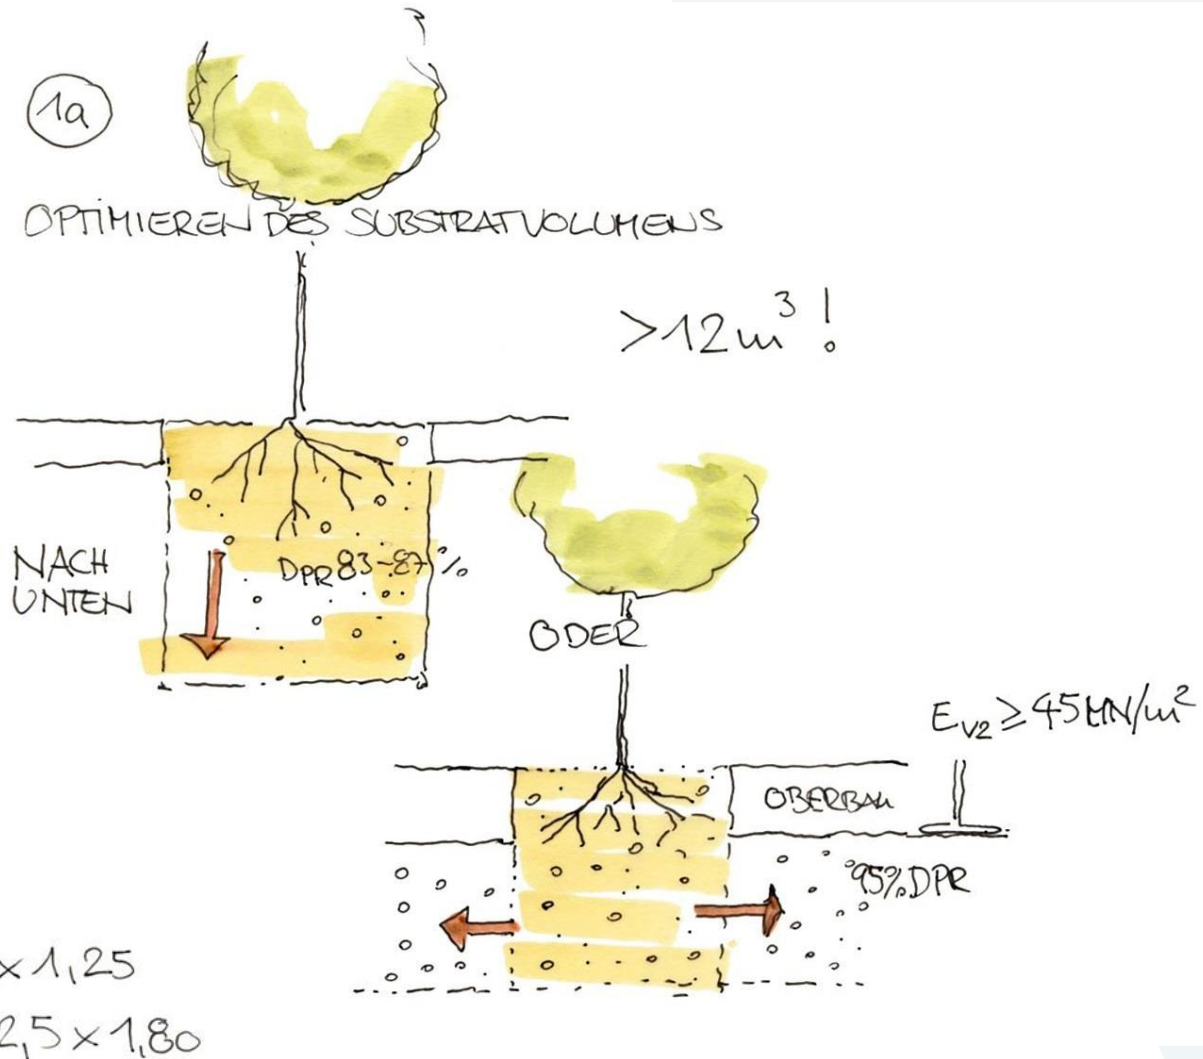 1a
OPTIMIEREN DES SUBSTRATVOLUMENS
>12m³!
NACH
UNTEN
DPR 83-87%
ODER
Ev2 ≥ 45MN/m²
OBERBAU
95% DPR
x 1,25
2,5 x 1,80